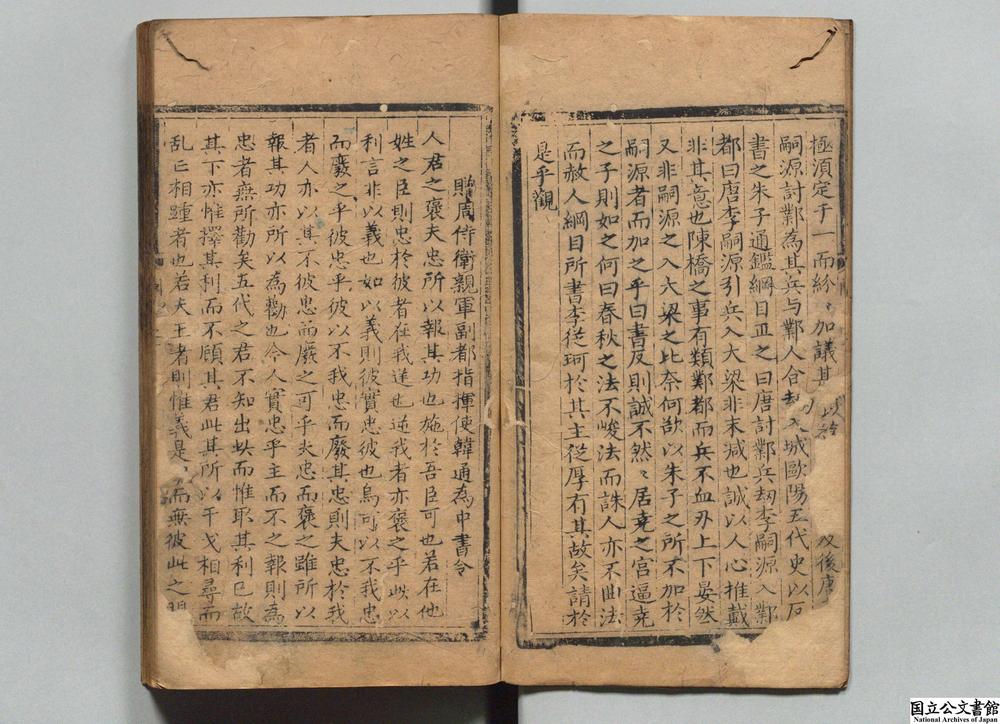 極須定于一而紛〻加議其
嗣源討鄴為其兵与鄴人合劫入城歐陽五代史以
書之朱子通鑑綱目正之曰唐討鄴兵劫李嗣源入鄴
都曰唐李嗣源引兵入大梁非末减也誠以人心推戴
非其意也陳橋之事有類鄴都而兵不血刃上下晏然
又非嗣源之入大梁之比奈何欲以朱子之所不加於
嗣源者而加之乎曰書反則誠不然〻居堯之宮逼堯
之子則如之何曰春秋之法不峻法而誅人亦不曲法
而赦人綱目所書李從珂於其主從厚有其故矣請於
是乎觀
贈周侍衛親軍副都指揮使韓通為中書令
人君之褒夫忠所以報其功也施於吾臣可也若在他
姓之臣則忠於彼者在我逆也逆我者亦褒之乎此以
利言非以義也如以義則彼實忠彼也烏可以不我忠
而廢之乎彼忠乎彼以不我忠而廢其忠則夫忠於我
者人亦以其不彼忠而廢之可乎夫忠而褒之雖所以
報其功亦所以為勸也今人實忠乎主而不之報則為
忠者無所勸矣五代之君不知出此而惟耴其利已故
其下亦惟擇其利而不顧其君此其所以干戈相尋而
乱亡相踵者也若夫王者則惟義是 而無彼此之
国立公文書館
National Archives of Japan